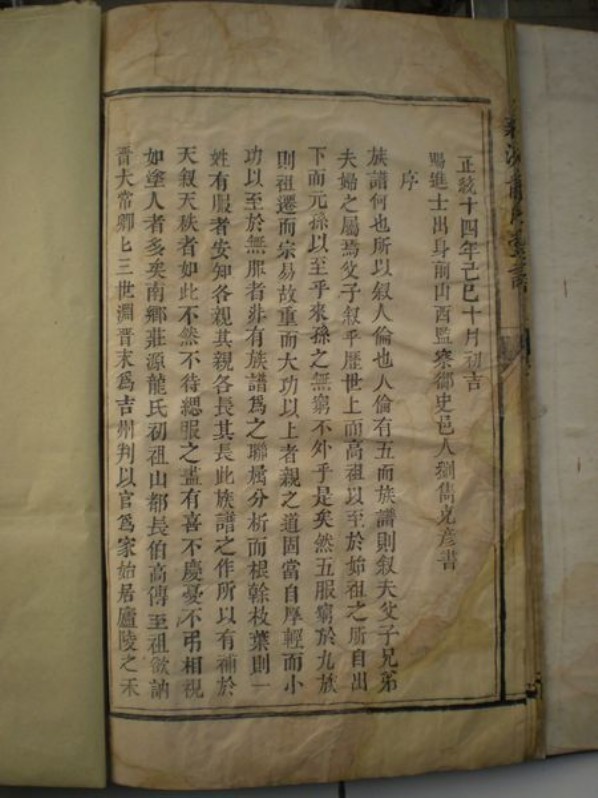 正統十四年己巳十月初吉
賜進士出身前山西監察御史邑人劉儁克彦書
序
族譜何也所以叙人倫也人倫有五而族譜則叙夫父子兄弟
夫婦之屬焉父子叙乎歷世上而高祖以至於始祖之所自出
下而元孫以至乎來孫之無窮不外乎是矣然五服窮於九族
則祖遷而宗易故重而大功以上者親之道固當自厚輕而小
功以至於無服者非有族譜爲之聯屬分析而根榦枝葉則一
姓有服者安知各親其親各長其長此族譜之作所以有補於
天叙天秩者如此不然不待緦服之盡有喜不慶憂不弔相視
如塗人者多矣南鄉莊源龍氏初祖山都長伯高傳至祖歆訥
晋大常卿七三世淵晋末爲吉州判以官爲家始居廬陵之禾